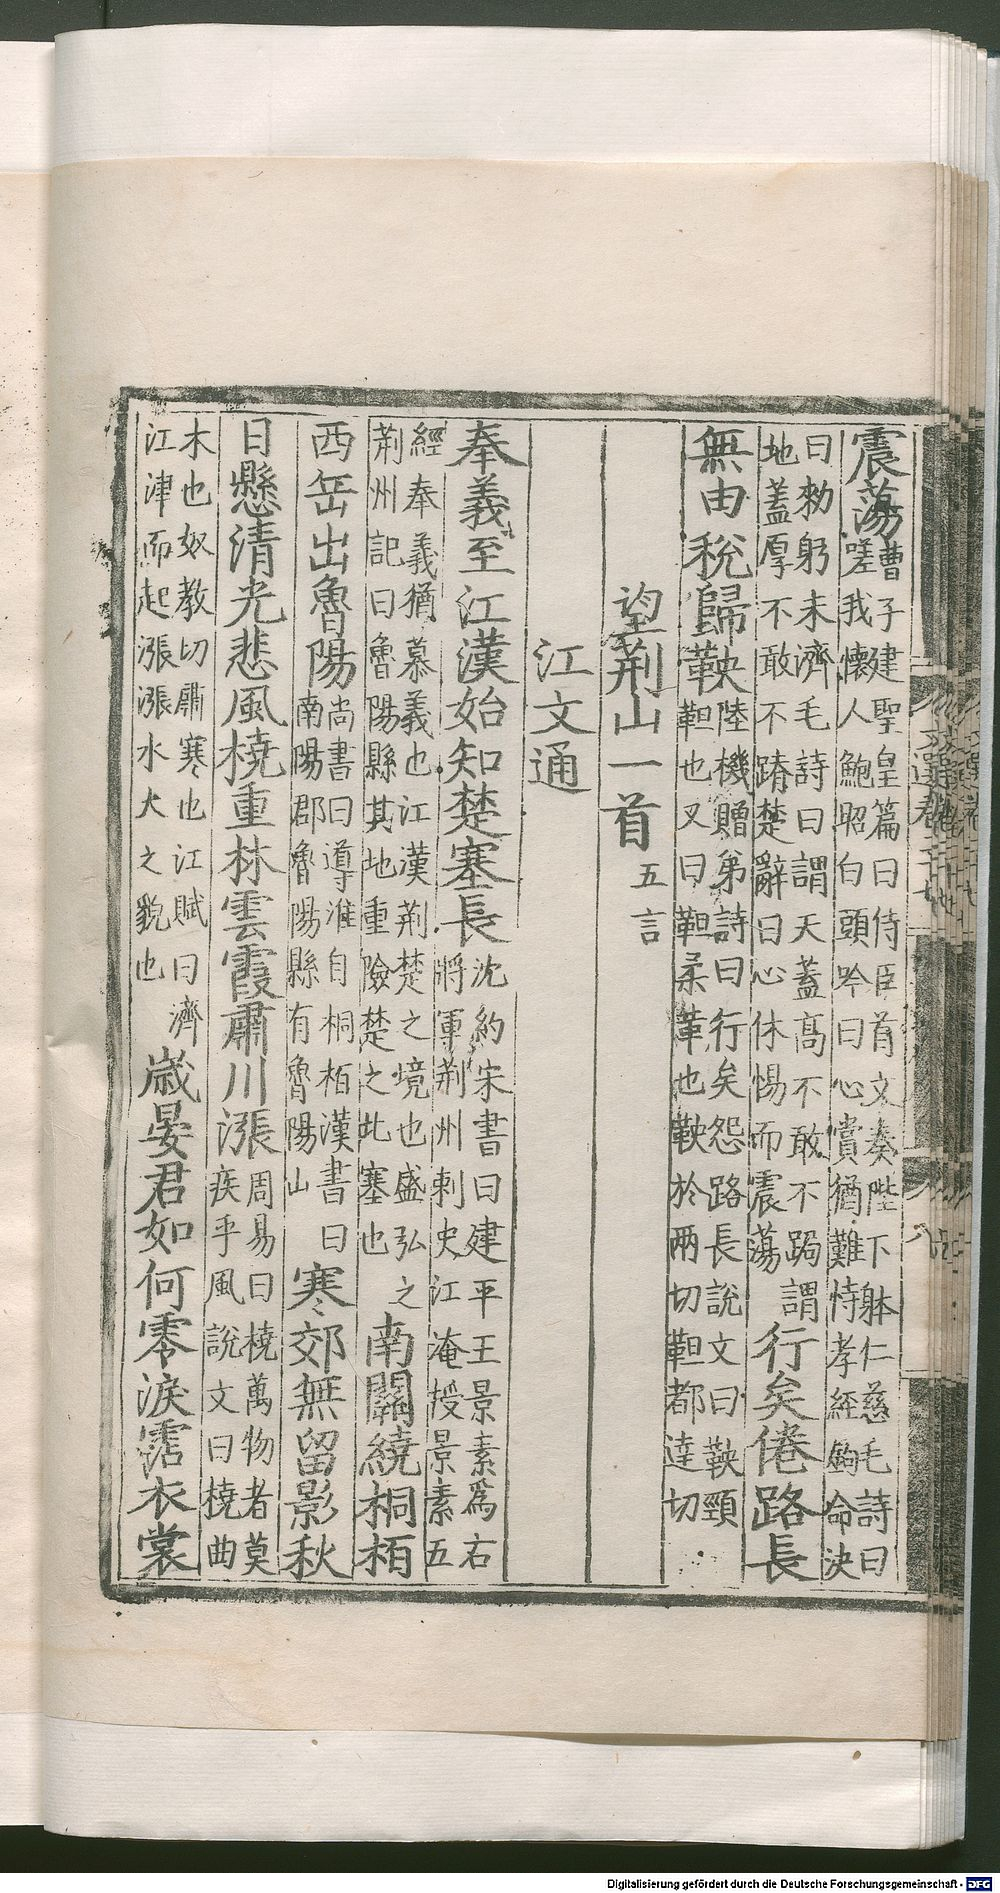 震蕩曹子建聖皇篇曰侍臣首文奏陛下躰仁慈毛詩曰
嗟我懷人鮑昭白頭吟曰心賞猶難恃孝經鉤命決
曰勑躬未濟毛詩曰謂天蓋高不敢不跼謂
地蓋厚不敢不蹐楚辭曰心休惕而震蕩行矣倦路長
無由稅歸鞅陸機贈弟詩曰行矣怨路長說文曰鞅頸
靼也又曰靼柔革也鞅於兩切靼都達切
望荆山一首五言
江文通
奉義至江漢始知楚塞長沈約宋書曰建平王景素為右
將軍荆州刺史江淹授景素五
經奉義猶慕義也江漢荆楚之境也盛弘之
荆州記曰魯陽縣其地重險楚之北塞也南關繞桐栢
西岳出魯陽尚書曰導淮自桐栢漢書曰
南陽郡魯陽縣有魯陽山寒郊無留影秋
日懸清光悲風橈重林雲霞肅川漲周易曰橈萬物者莫
疾乎風說文曰橈曲
木也奴教切肅寒也江賦曰濟
江津而起漲漲水大之貌也歲晏君如何零淚霑衣裳
Digitalisierung gefördert durch die Deutsche Forschungsgemeinschaft - DFG